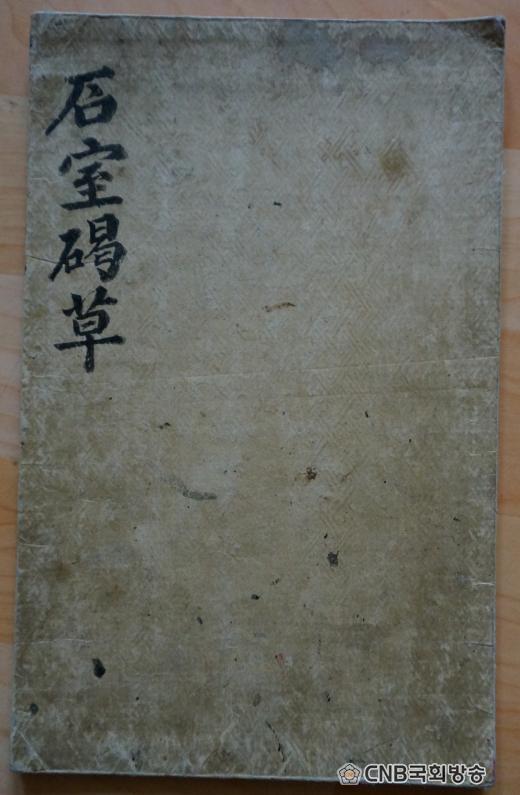 石室碣草
CNB국회방송